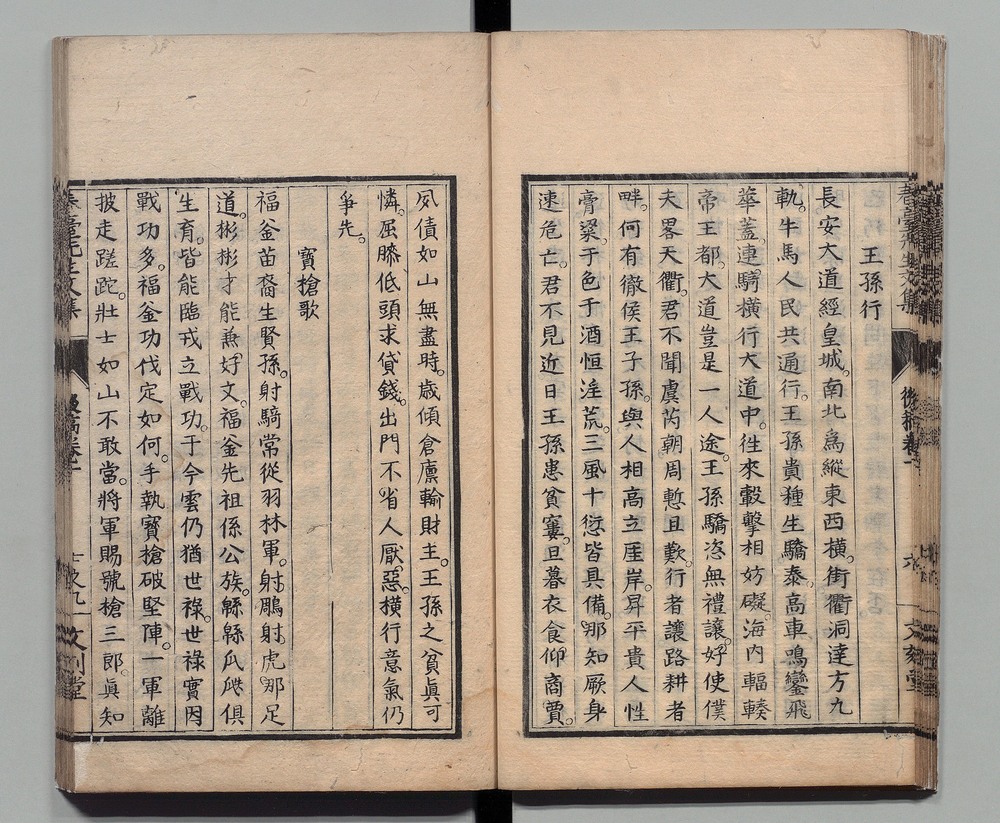 王孫行
長安大道經皇城。南北爲縱東西横。街衢洞達方九
軌。牛馬人民共通行。王孫貴種生驕泰。高車鳴鑾飛
華蓋。連騎橫行大道中。往來轂擊相妨礙。海内輻輳
帝王都。大道豈是一人途。王孫驕恣無禮讓。好使僕
夫畧天衢。君不聞虞芮朝周慙且歎。行者讓路耕者
畔。何有徹侯王子孫。與人相高立厓岸。昇平貴人性
膏粱。于色于酒恒淫荒。三風十愆皆具備。那知厥身
速危亡。君不見近日王孫患貧窶。旦暮衣食仰商賈。
夙債如山無盡時。歳傾倉廩輸財主。王孫之貧眞可
憐。屈膝低頭求貸錢。出門不省人厭惡。横行意氣仍
爭先。
寳槍歌
福釜苗裔生賢孫。射騎常從羽林軍。射鵰射虎那足
道。彬彬才能兼好文。福釜先祖係公族。緜緜瓜瓞俱
生育。皆能臨戎立戰功。于今雲仍猶世祿。世祿實因
戰功多。福釜功伐定如何。手執寳槍破堅陣。一軍離
披走蹉跎。壯士如山不敢當。將軍賜號槍三郎。眞知
後稿卷一
六
文刻堂